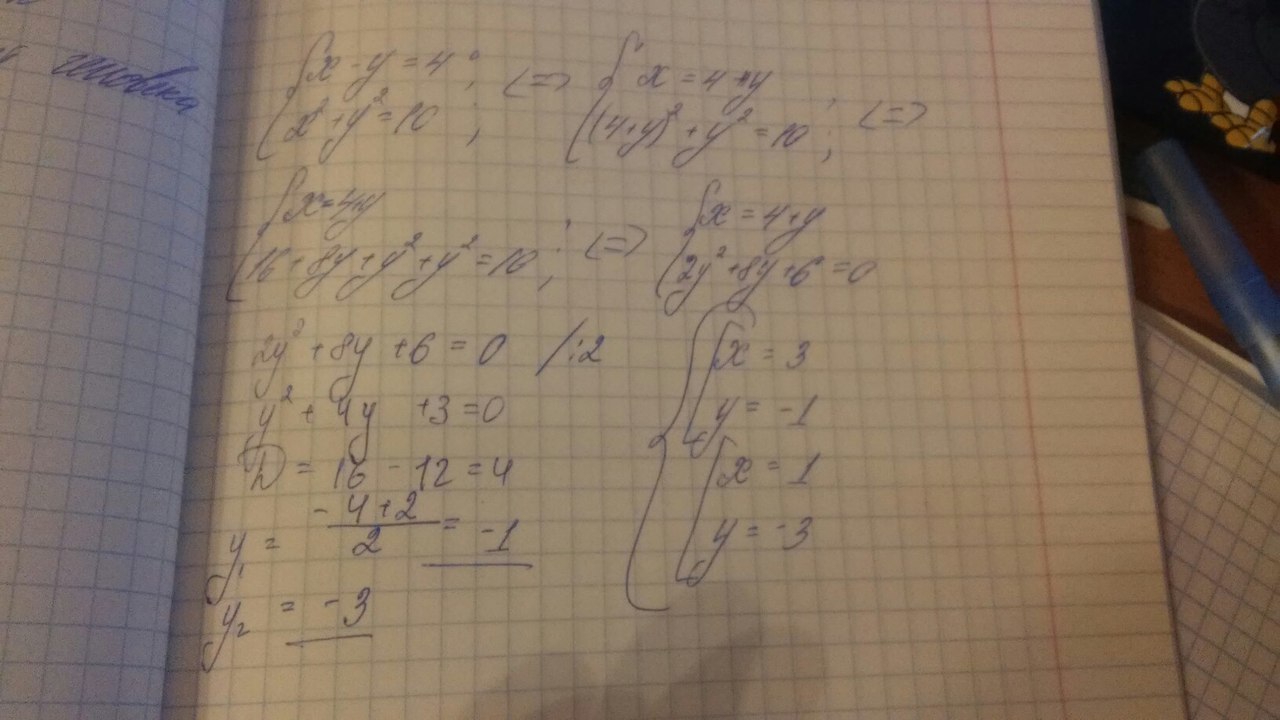 { x - y = 4 ; <=> { x = 4 + y
{ x² + y² = 10 ; { (4+y)² + y² = 10 ; <=>
{ x = 4+y { x = 4+y
{ 16 + 8y + y² + y² = 10 ; <=> { 2y² + 8y + 6 = 0
2y² + 8y + 6 = 0 /:2
y² + 4y + 3 = 0
D = 16 - 12 = 4
y₁ = (-4+2)/2 = -1
y₂ = -3
{ x = 3
{ y = -1
{ x = 1
{ y = -3